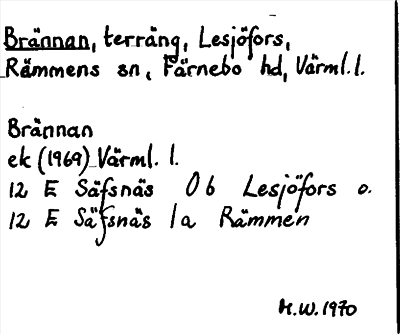 Brännan, terräng, Lesjöfors,
Rämmens sn, Färnebo hd, Värml. l.
Brännan
ek (1969) Värml. l.
12 E Säfsnäs 0 b Lesjöfors o.
12 E Säfsnäs 1 a Rämmen
M.W. 1970